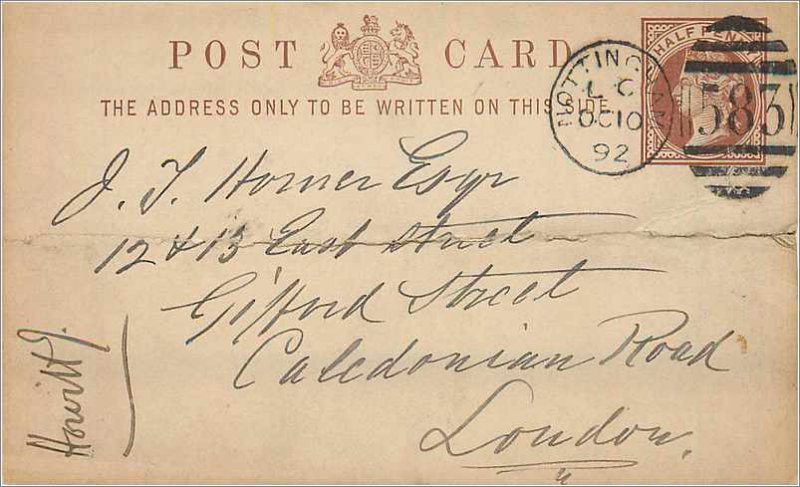 POST CARD
THE ADDRESS ONLY TO BE WRITTEN ON THIS SIDE.
HALFPENNY
NOTTINGHAM
L C
OC 10
92
583
J. T. Horner Esqr
12 & 13 East Street
Gifford Street
Caledonian Road
London.
Howitt J.